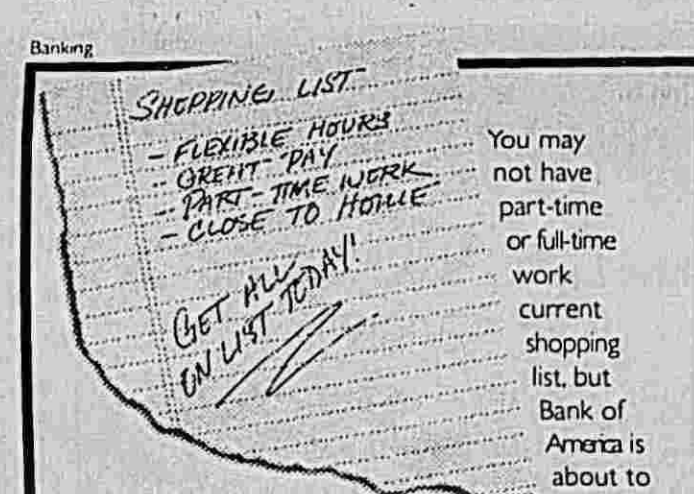 Banking
SHOPPING LIST
- FLEXIBLE HOURS
- GREAT PAY
- PART-TIME WORK
- CLOSE TO HOME
GET ALL
ON LIST TODAY!
You may
not have
part-time
or full-time
work
current
shopping
list, but
Bank of
America is
about to